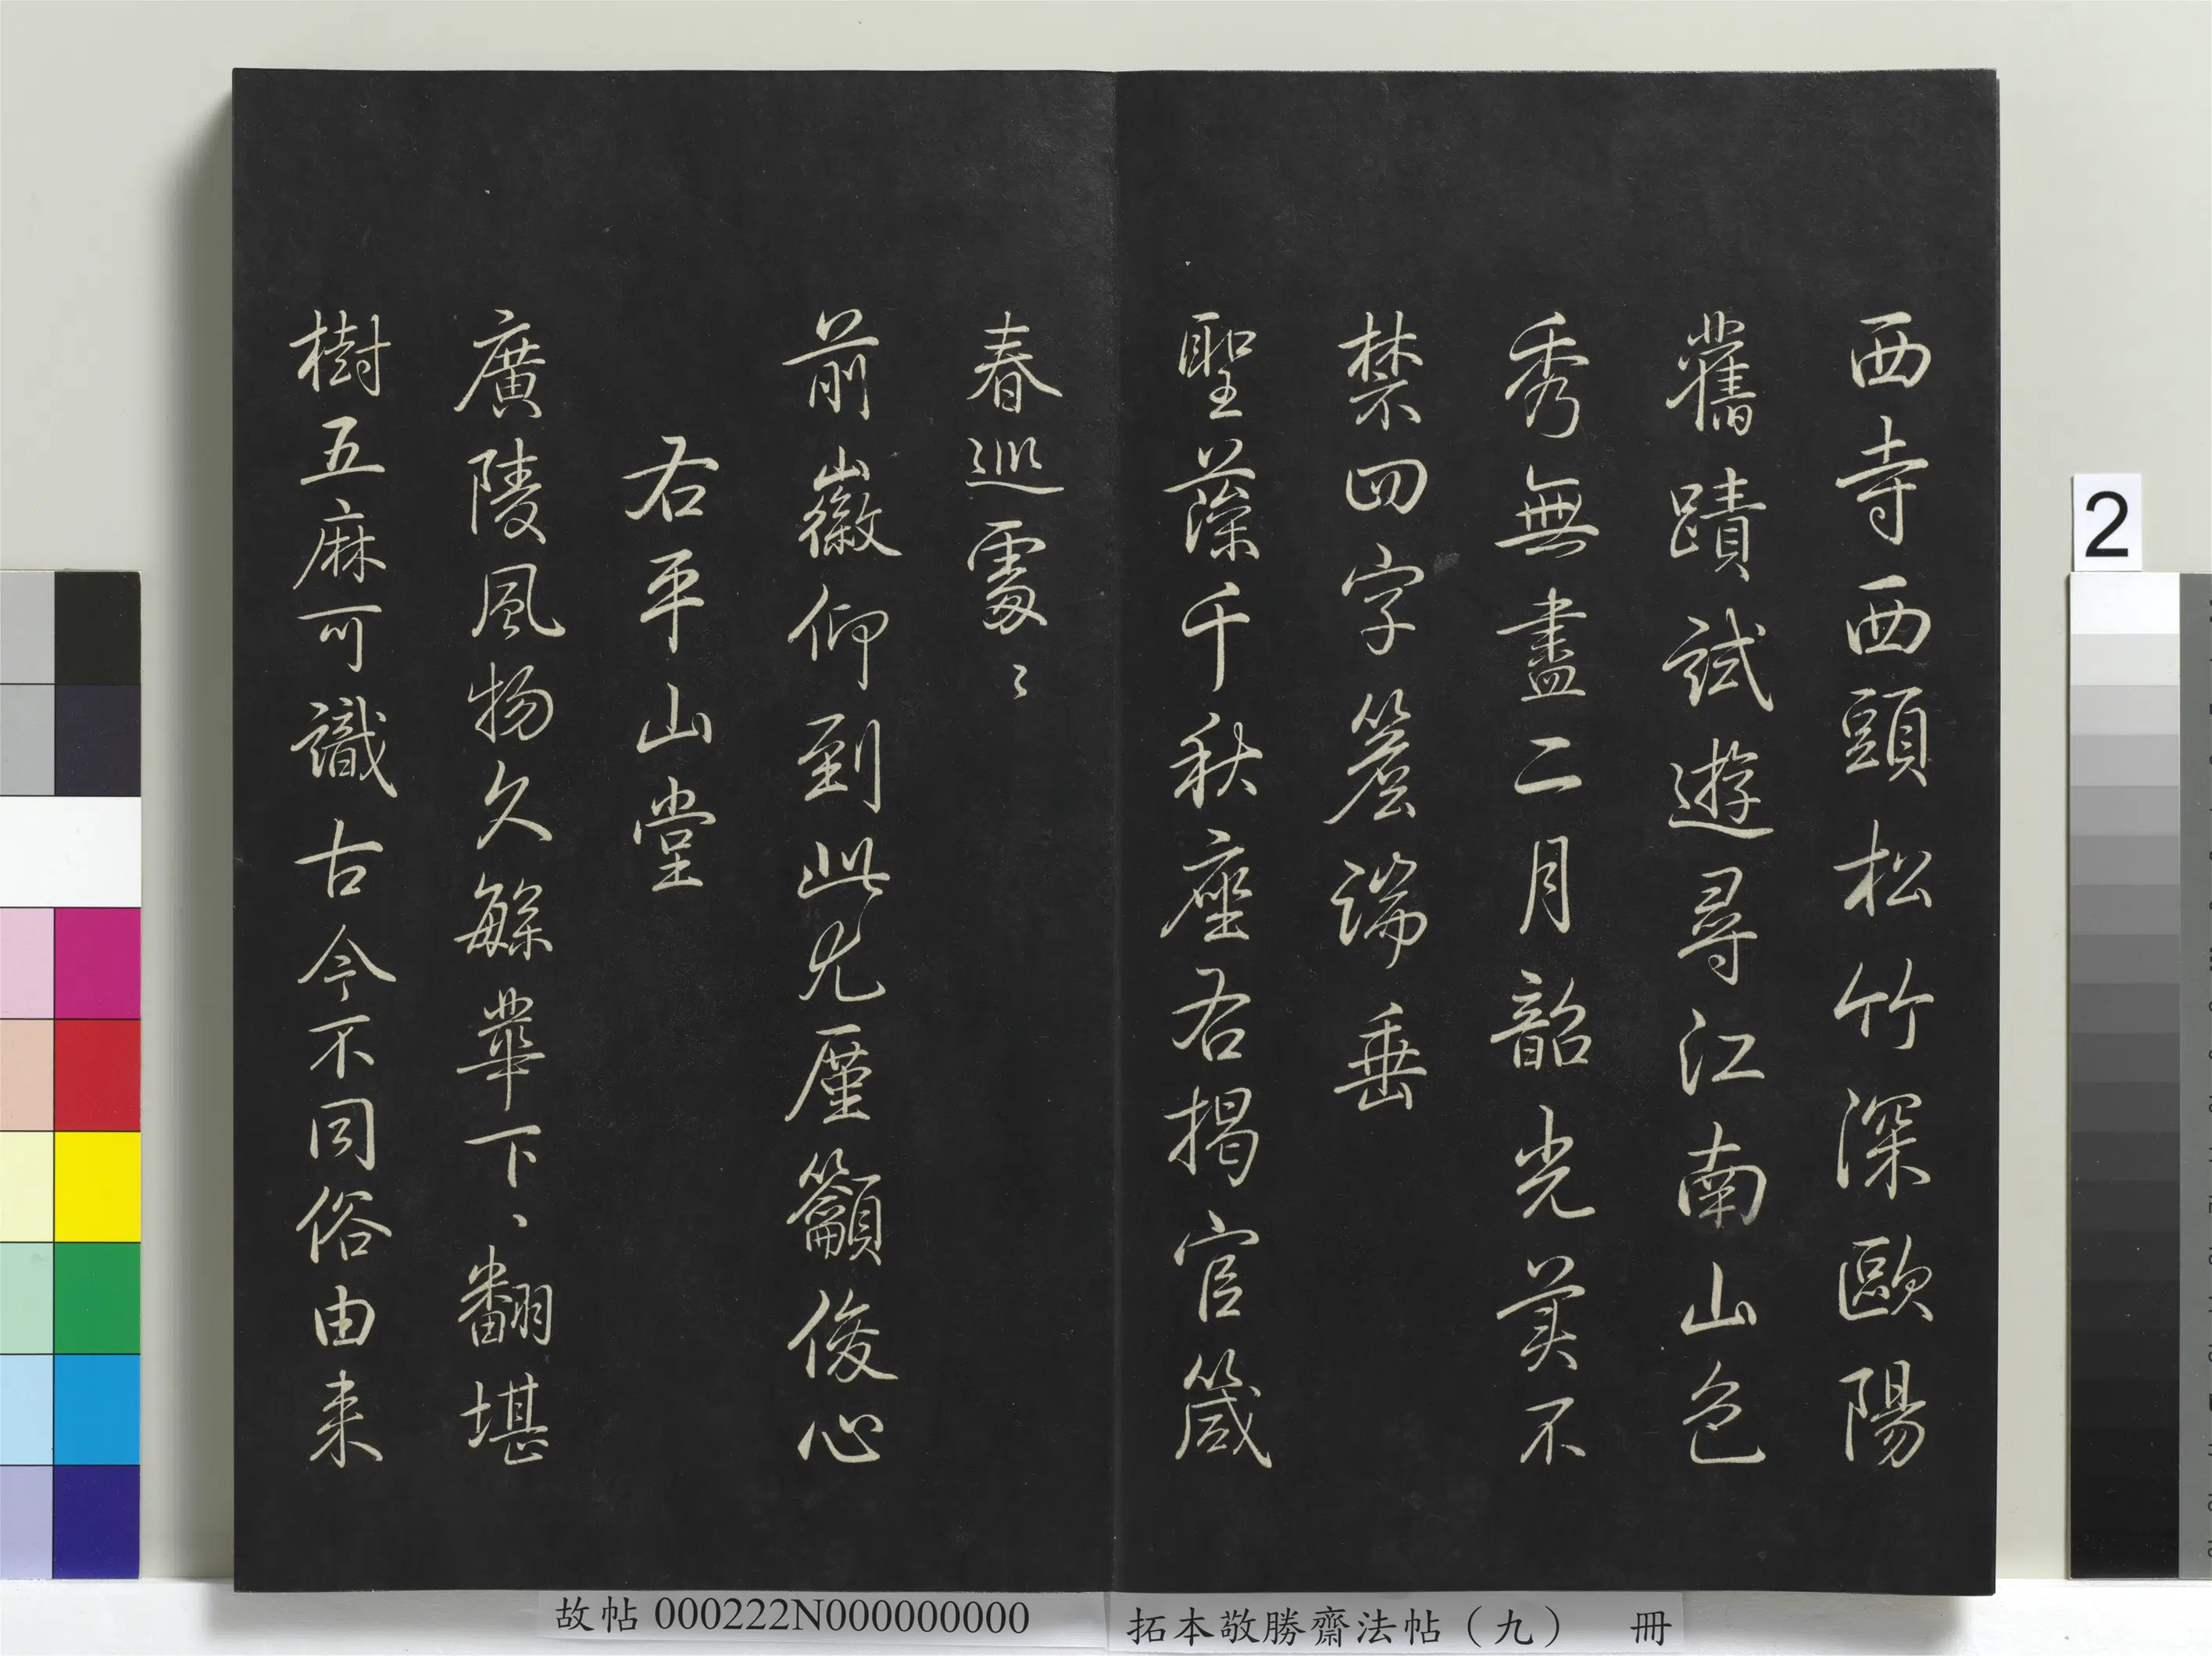 西寺西頭松竹深歐陽
舊蹟試遊尋江南山色
秀無盡二月韶光美不
禁四字簷端垂
聖藻千秋座右揭官箴
春巡處〻
前徽仰到此尤廑籲俊心
右平山堂
廣陵風物久繇華下、翻堪
樹五麻可識古今不同俗由来
2
故帖 000222N000000000
拓本敬勝齋法帖（九） 冊